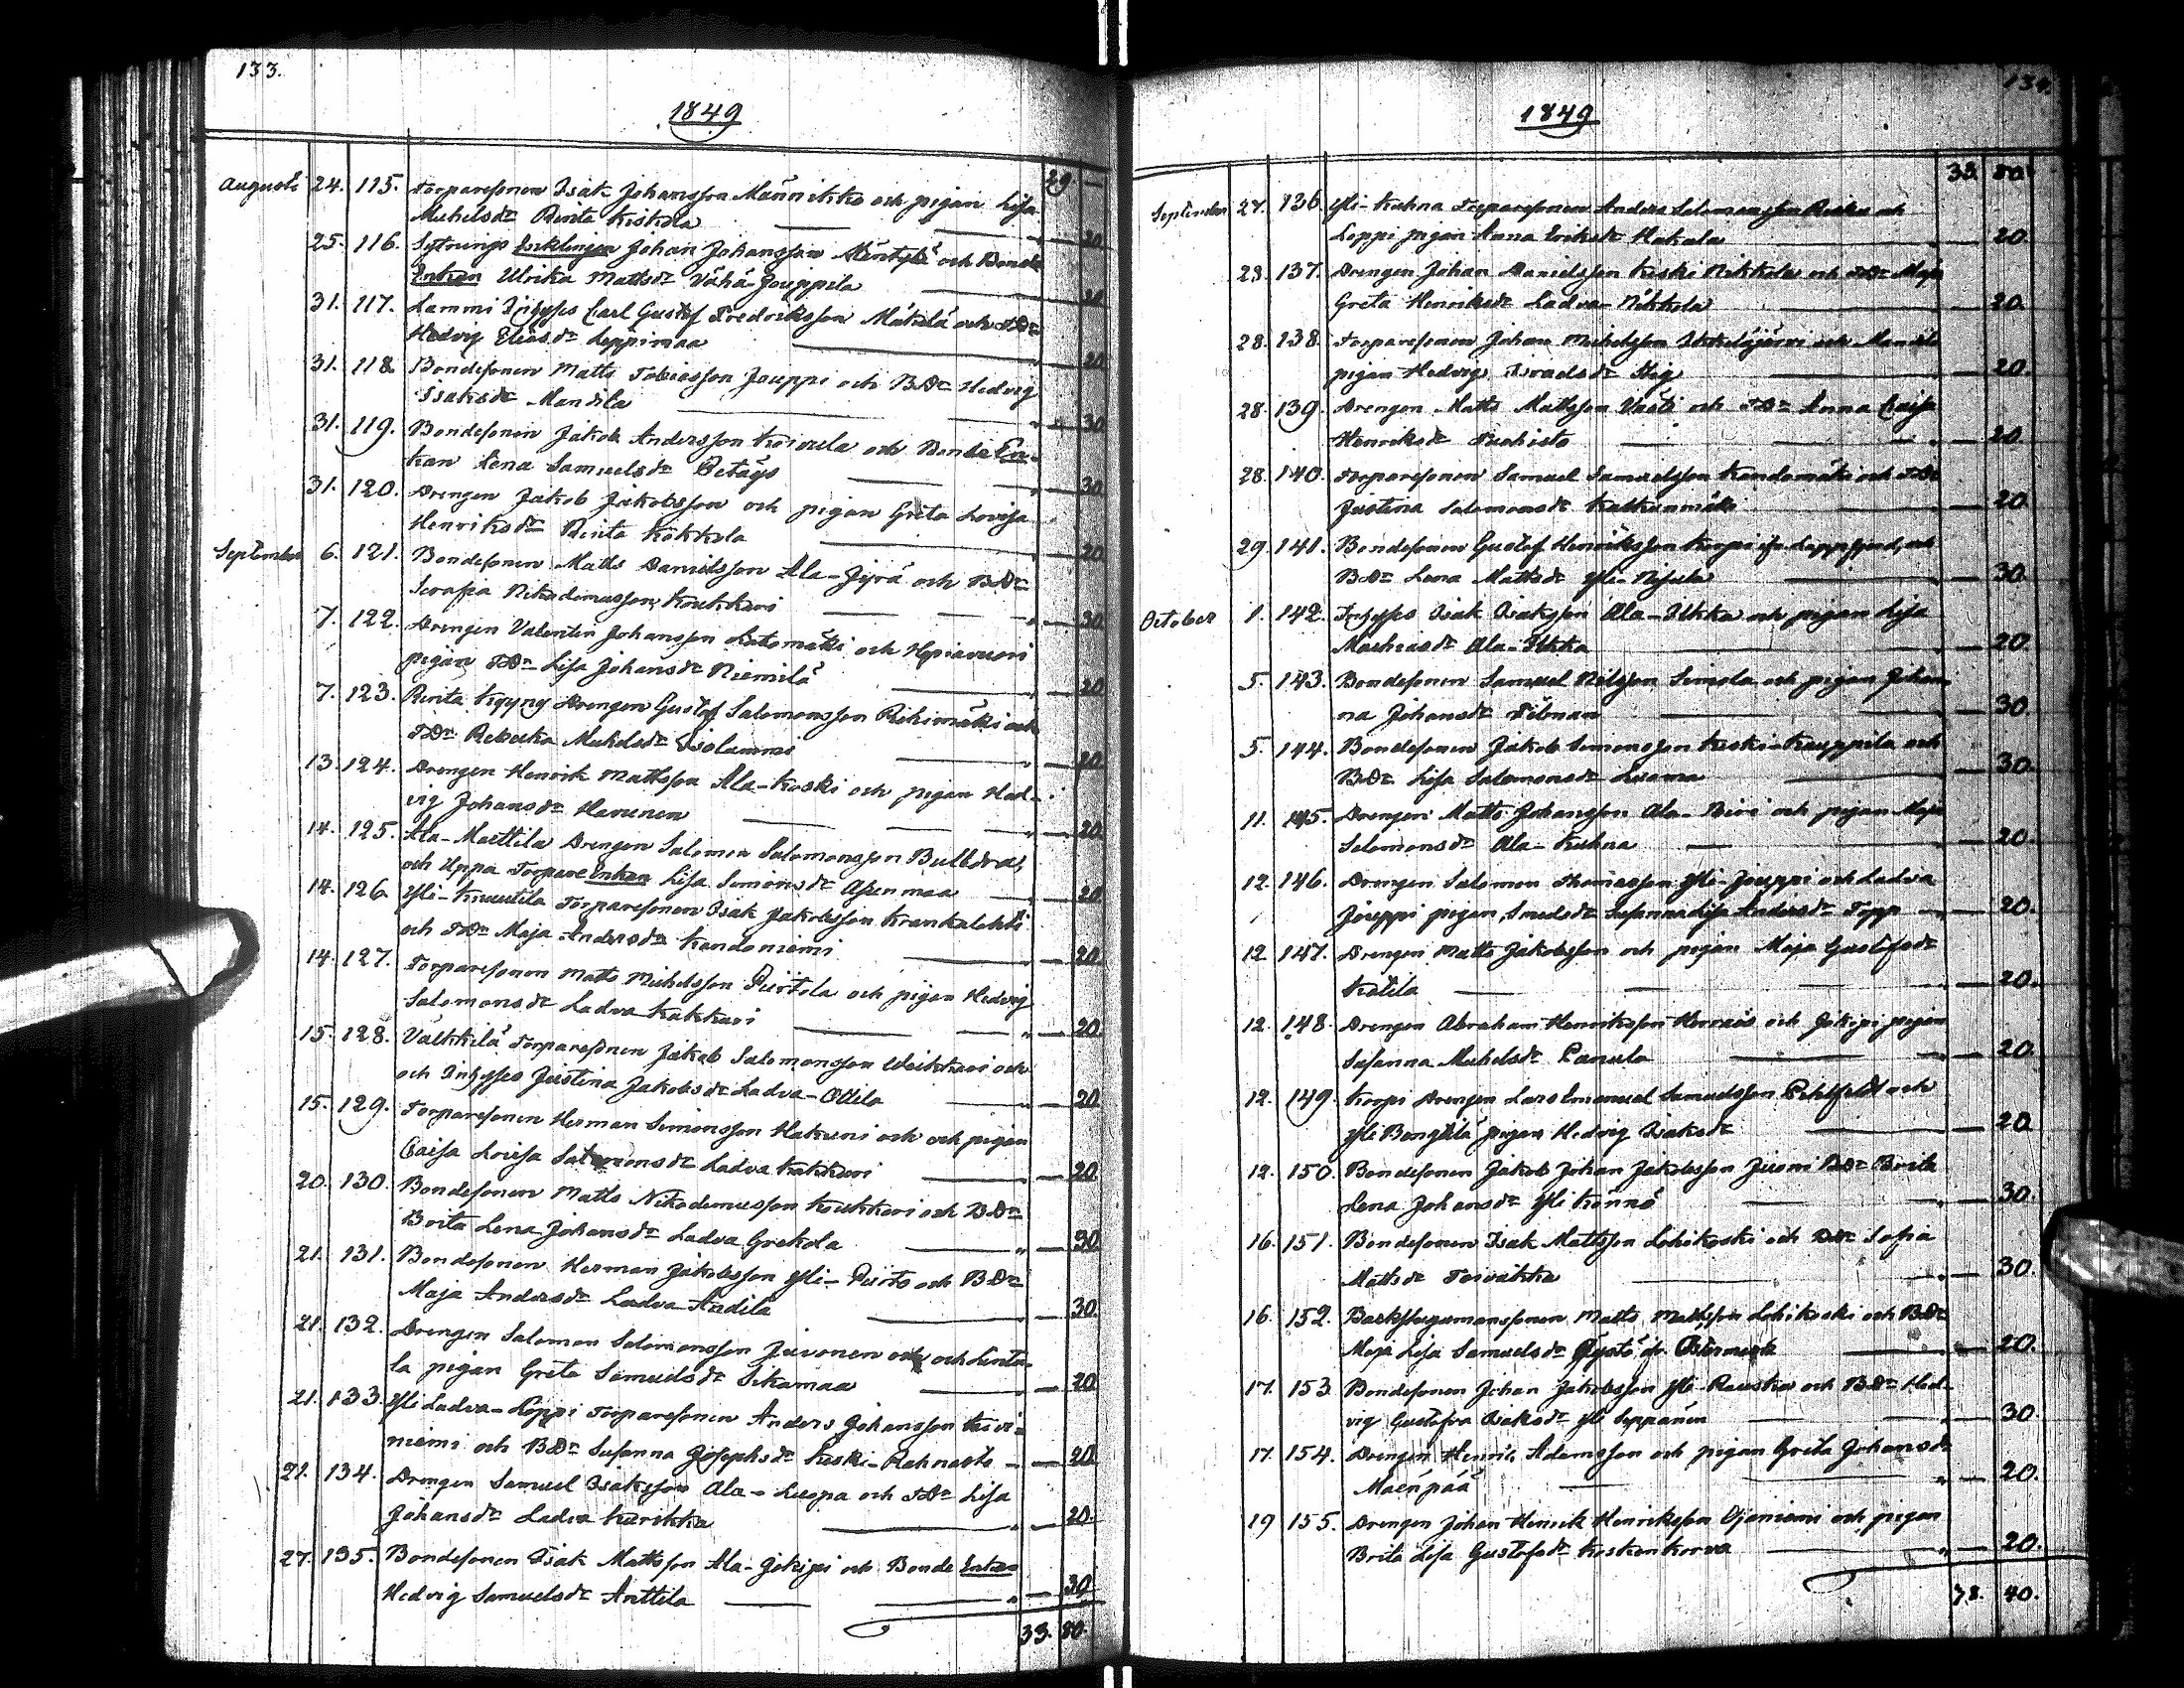 133.
1849
29 —
Augusti 24. 115. Torparesonen Isak Johansson Männikkö och pigan Lisa
Michelsdr Rinta Keskola — 20
25. 116. Sytnings Enklingen Johan Johansson Mäntylä och Bonde
Enkan Ulrika Mattsdr Vähä-Jouppila — 20
31. 117. Lammi Inhyses Carl Gustaf Fredriksson Mäkelä och TDr
Hedvig Eliasdr Leppimaa — 20
31. 118. Bondesonen Matts Tobiasson Jouppi och BDr Hedvig
Isaksdr Mandila — 30
31. 119. Bondesonen Jakob Andersson Koivula och Bonde En-
kan Lena Samuelsdr — 30
31. 120. Drengen Jakob Jakobsson och pigan Greta Lovisa
Henriksdr Rinta Kokkola — 20
September 6. 121. Bondesonen Matts Danielsson Ala-Jyrä och BDr
Serafia Nikodemusson Koukkari — 30
7. 122. Drengen Valentin Johansson Latomäki och
pigan TDr Lisa Johansdr Niemilä — 20
7. 123. Rinta Drengen Gustaf Salomonsson Riihimäki och
TDr Rebecka Michelsdr Isolammi — 20
13. 124. Drengen Henrik Mattsson Ala-Koski och pigan Hed-
vig Johansdr Harunen — 20
14. 125. Ala-Marttila Drengen Salomon Salomonsson
och Uppa Torpare Enkan Lisa Simonsdr Assenmaa — 20
14. 126. Yli-Knuutila Torparesonen Isak Jakobsson Krankalahti
och TDr Maja Andersdr Kandoniemi — 20
14. 127. Torparesonen Matts Michelsson Piirtola och pigan Hedvig
Salomonsdr Ladva Kakkuri — 20
15. 128. Välkkilä Torparesonen Jakob Salomonsson och
och Inhyses Justina Jakobsdr Ladva-Ollila — 20
15. 129. Torparesonen Herman Simonsson Hakuni och och pigan
Caisa Lovisa Salomonsdr Ladva Kakkuri — 20
20. 130. Bondesonen Matts Nikodemusson Koukkari och BDr
Brita Lena Johansdr Ladva Grekola — 30
21. 131. Bondesonen Herman Jakobsson Yli-Piirto och BDr
Maja Andersdr Ladva Andila — 30.
21. 132. Drengen Salomon Salomonsson Juvonen och och Luuta-
la pigan Greta Samuelsdr Sikamaa — 20
21. 133. Yli Ladva-Loppi Torparesonen Anders Johansson Kivi-
niemi och BDr Susanna Josephsdr Keski-Rahnasto — 20
21. 134. Drengen Samuel Isaksson Ala-Luopa och TDr Lisa
Johansdr Ladva Kurikka — 20.
27. 135. Bondesonen Isak Mattsson Ala-Jokipi och Bonde Enkan
Hedvig Samuelsdr Anttila — 30
33. 80.
134.
1849
33. 80.
September 27. 136. Yli-Kuhna Torparesonen Anders Salomonsson och
Loppi pigan Anna Eriksdr Hakala — 20.
28. 137. Drengen Johan Danielsson Keski Nikkola och TDr Maja
Greta Henriksdr Ladva-Nikkola — 20.
28. 138. Torparesonen Johan Michelsson och
pigan Hedvig Israelsdr — 20
28. 139. Drengen Matts Mattsson och TDr Anna Caisa
Henriksdr — 20
28. 140. Torparesonen Samuel Samuelsson Kandomäki och TDr
Justina Salomonsdr Katkenmäki — 20.
29. 141. Bondesonen Gustaf Henriksson Korpi ifr. Lappfjerd, och
BDr Lena Mattsdr Yli-Nisula — 30.
October 1. 142. Inhyses Isak Isaksson Ala-Ukko och pigan Lisa
Mathiasdr Ala-Ukko — 20
5. 143. Bondesonen Samuel Nilsson Simola och pigan Johan
na Johansdr Filman — 30.
5. 144. Bondesonen Jakob Simonsson Keski-Kauppila och
BDr Lisa Salomonsdr Luoma — 30.
11. 145. Drengen Matts Johansson Ala-Piiri och pigan Maja
Salomonsdr Ala-Kuhna — 20.
12. 146. Drengen Salomon Thomasson Yli-Jouppi och Ladva
Jouppi pigan, Smedsdr Susanna Lisa Andersdr Topp — 20.
12. 147. Drengen Matts Jakobsson och pigan Maja Gustafsdr
Kotila — 20.
12. 148. Drengen Abraham Henriksson och Jokipi pigan
Susanna Michelsdr Panula — 20.
12. 149. Korpi Drengen Lars Emanuel Samuelsson och
Yli pigan Hedvig Isaksdr — 20
12. 150. Bondesonen Jakob Johan Jakobsson Juoni BDr Brita
Lena Johansdr Yli Könnö — 30.
16. 151. Bondesonen Isak Mattsson Lohikoski och BDr Sofia
Mattsdr Toivakka — 30.
16. 152. Matts Mattsson Lohikoski och BDr
Maja Lisa Samuelsdr — 20.
17. 153. Bondesonen Johan Jakobsson Yli-Rauska och BDr Hed-
vig Gustafva Isaksdr Yli Seppänen — 30.
17. 154. Drengen Henrik Adamsson och pigan Greta Johansdr
Mäenpää — 20.
19 155. Drengen Johan Henrik Henriksson Ojaniemi och pigan
Brita Lisa Gustafsdr Koskenkorva — 20.
38. 40.